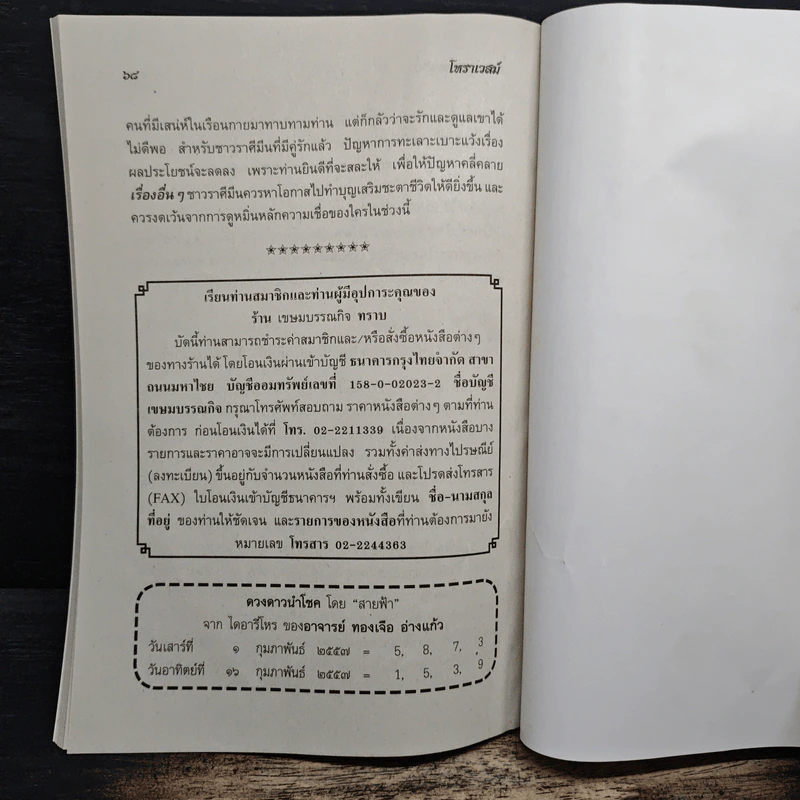 ๖๘ โหราเวสม์
คนที่มีเสน่ห์ในเรือนกายมาทาบทามท่าน แต่ก็กลัวว่าจะรักและดูแลเขาได้
ไม่ดีพอ สำหรับชาวราศีมีนที่มีคู่รักแล้ว ปัญหาการทะเลาะเบาะแว้งเรื่อง
ผลประโยชน์จะลดลง เพราะท่านยินดีที่จะสละให้ เพื่อให้ปัญหาคลี่คลาย
เรื่องอื่น ๆ ชาวราศีมีนควรหาโอกาสไปทำบุญเสริมชะตาชีวิตให้ดียิ่งขึ้น และ
ควรงดเว้นจากการดูหมิ่นหลักความเชื่อของใครในช่วงนี้
เรียนท่านสมาชิกและท่านผู้มีอุปการะคุณของ
ร้าน เขษมบรรณกิจ ทราบ
บัดนี้ท่านสามารถชำระค่าสมาชิกและ/หรือสั่งซื้อหนังสือต่างๆ
ของทางร้านได้ โดยโอนเงินผ่านเข้าบัญชี ธนาคารกรุงไทยจำกัด สาขา
ถนนมหาไชย บัญชีออมทรัพย์เลขที่ 158-0-02023-2 ชื่อบัญชี
เขษมบรรณกิจ กรุณาโทรศัพท์สอบถาม ราคาหนังสือต่างๆ ตามที่ท่าน
ต้องการ ก่อนโอนเงินได้ที่ โทร. 02-2211339 เนื่องจากหนังสือบาง
รายการและราคาอาจจะมีการเปลี่ยนแปลง รวมทั้งค่าส่งทางไปรษณีย์
(ลงทะเบียน) ขึ้นอยู่กับจำนวนหนังสือที่ท่านสั่งซื้อ และโปรดส่งโทรสาร
(FAX) ใบโอนเงินเข้าบัญชีธนาคารฯ พร้อมทั้งเขียน ชื่อ-นามสกุล
ที่อยู่ ของท่านให้ชัดเจน และรายการของหนังสือที่ท่านต้องการมายัง
หมายเลข โทรสาร 02-2244363
ดวงดาวนำโชค โดย "สายฟ้า"
จาก ไดอารี่โหร ของอาจารย์ ทองเจือ อ่างแก้ว
วันเสาร์ที่ ๑ กุมภาพันธ์ ๒๕๕๗ = 5, 8, 7, 3
วันอาทิตย์ที่ ๑๖ กุมภาพันธ์ ๒๕๕๗ = 1, 5, 3, 9